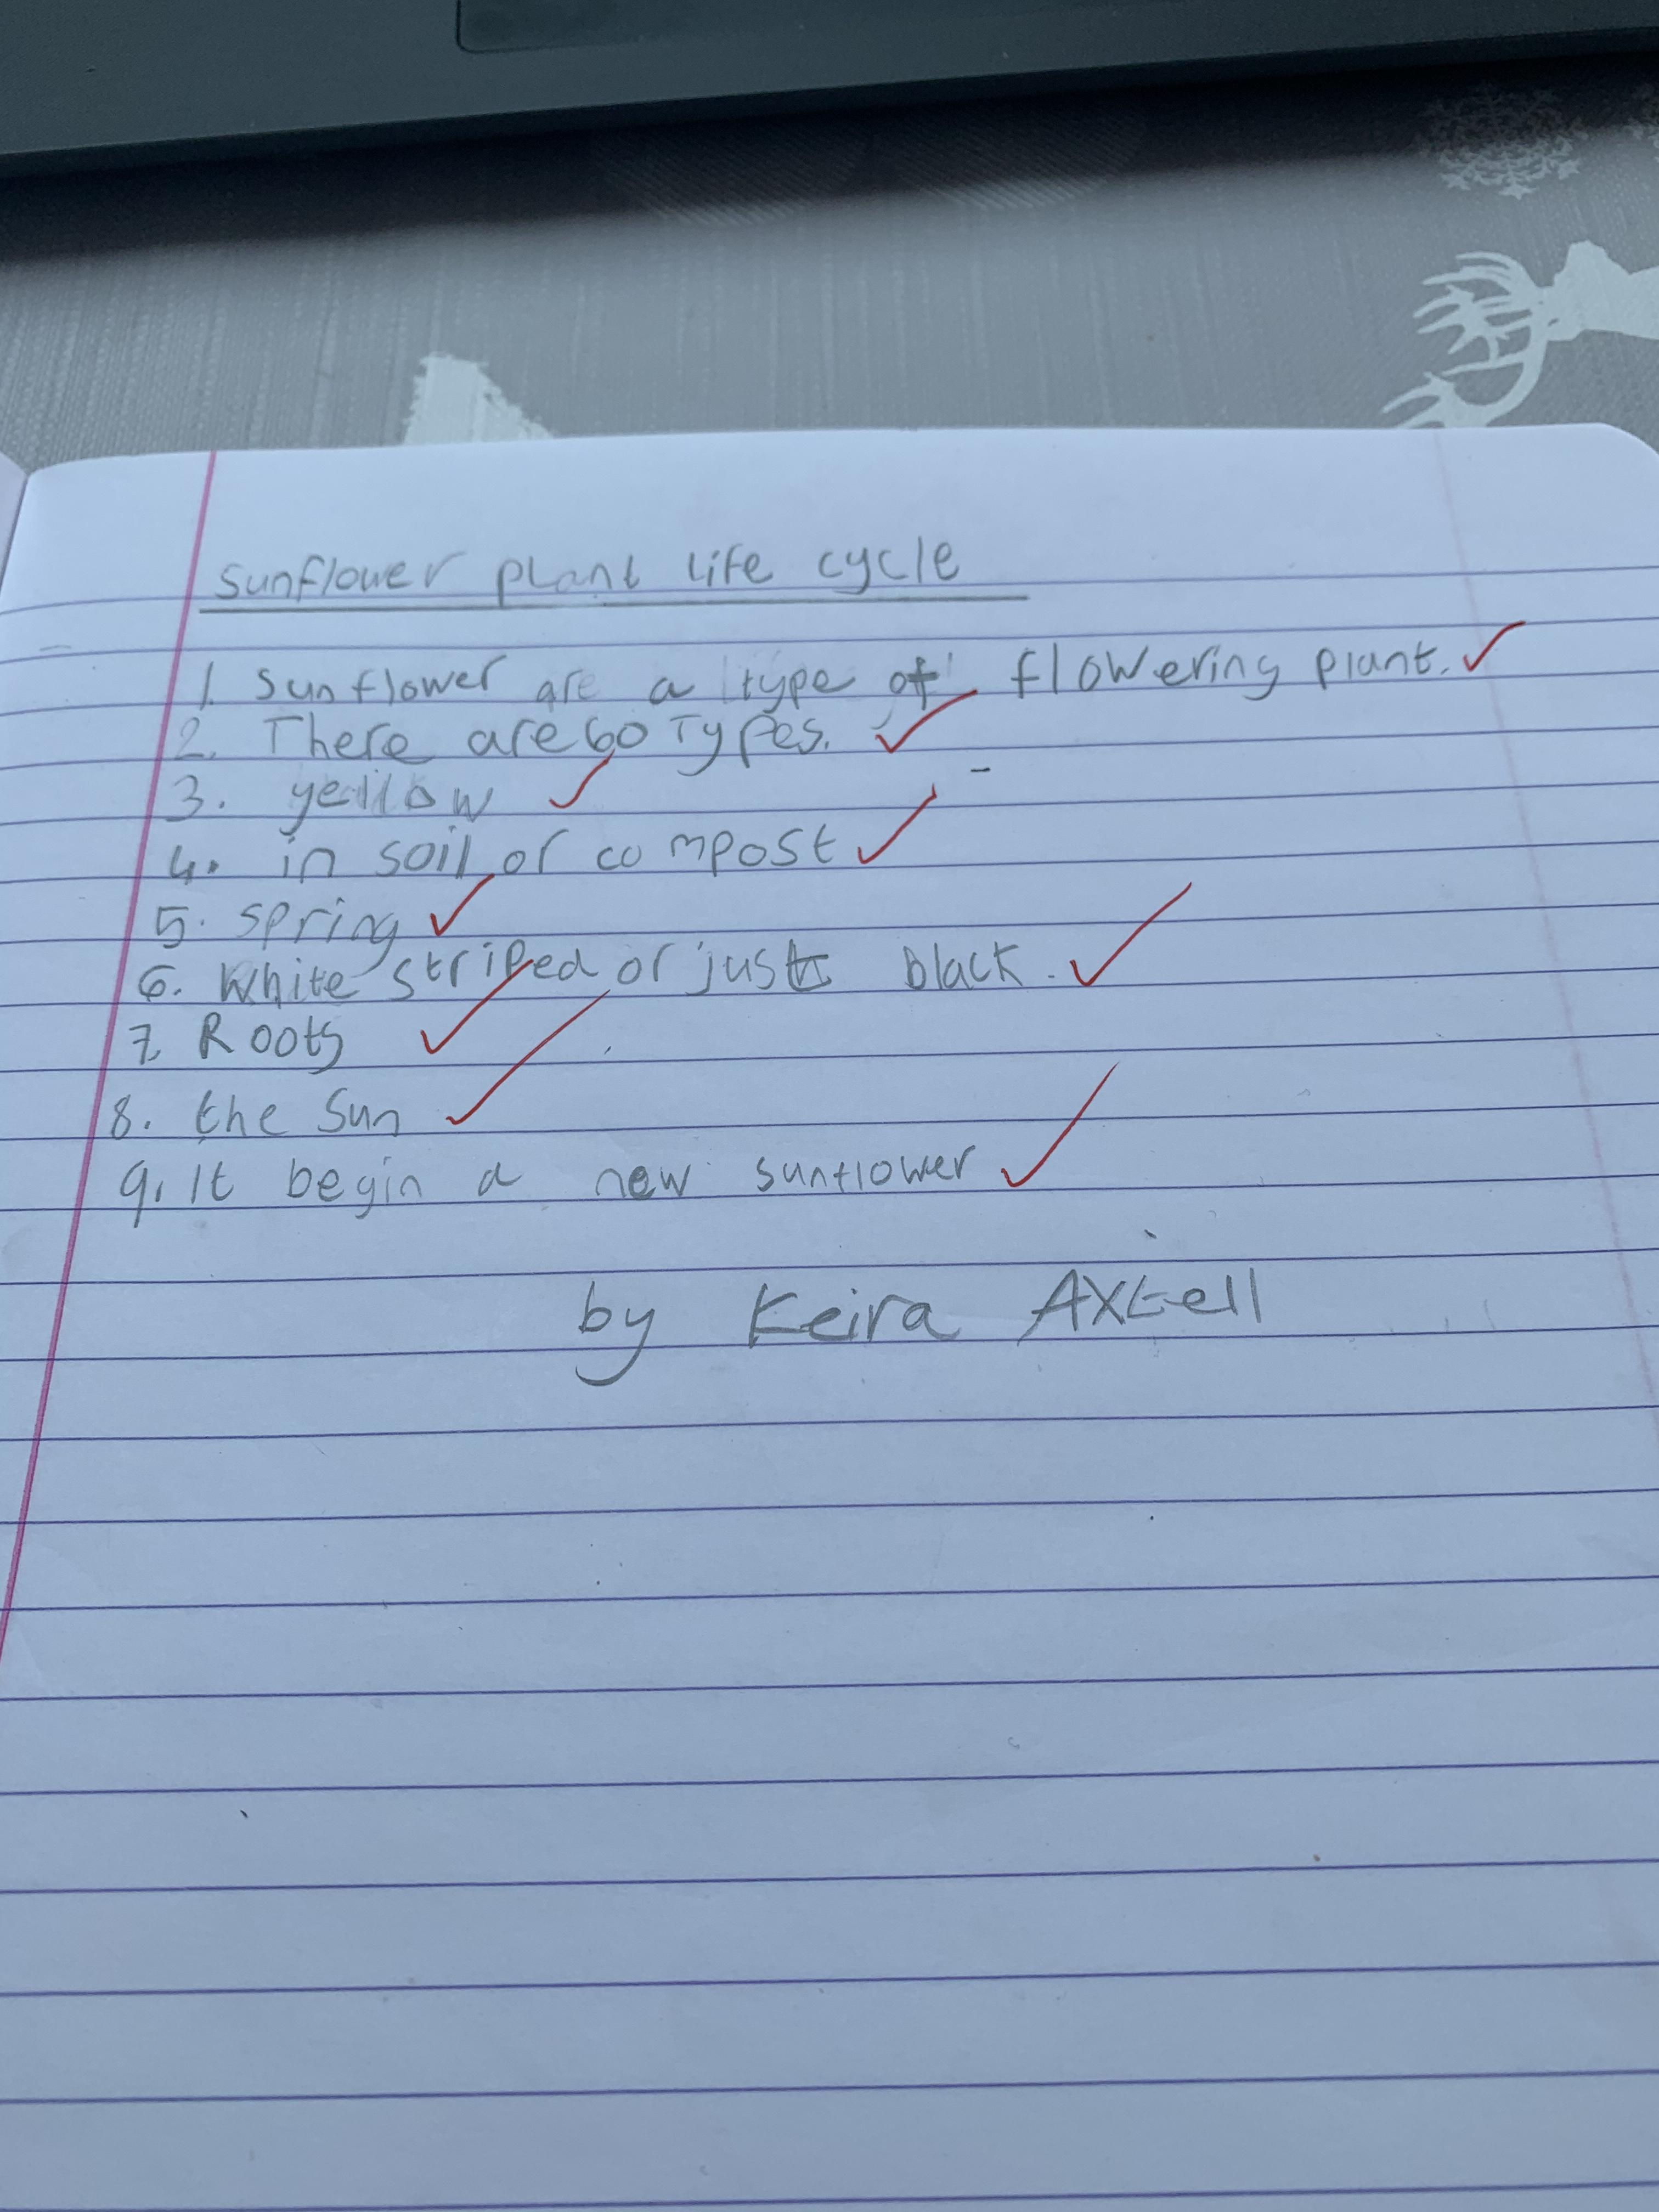 Sunflower plant life cycle
1. Sunflower are a type of flowering plant.
2. There are 60 Types.
3. yellow
4. in soil or compost
5. spring
6. White striped or just black.
7. Roots
8. the Sun
9. It begin a new sunflower
by Keira Axtell